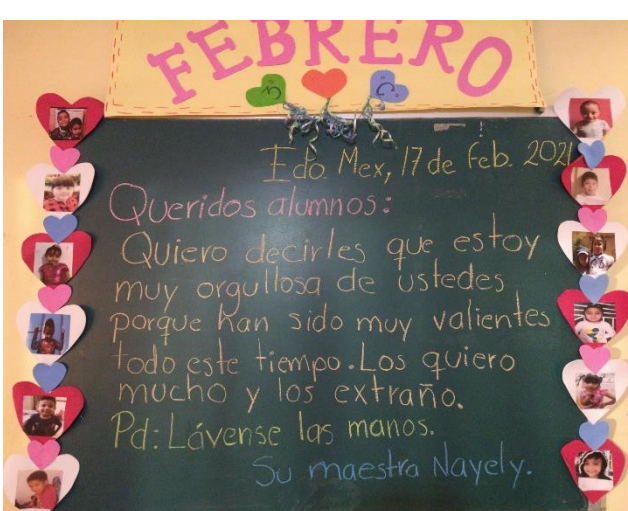 FEBRERO
3 C
Edo. Mex, 17 de Feb. 2021
Queridos alumnos:
Quiero decirles que estoy
muy orgullosa de ustedes
porque han sido muy valientes
todo este tiempo. Los quiero
mucho y los extraño.
Pd: Lávense las manos.
Su maestra Nayely.